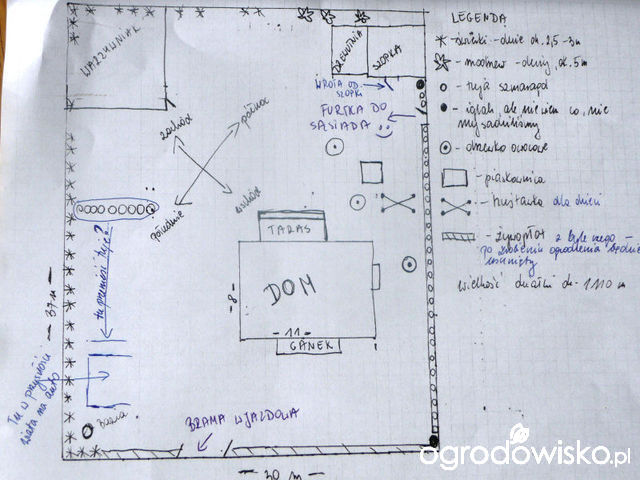 WARZYWNIAK
DREWUTNIA
SZOPKA
WROTA OD.
SZOPKI
FURTKA DO
SĄSIADA
zachód
północ
południe
wschód
TARAS
DOM
8
11
GANEK
tu przenieść tuje?
37 m
Tu w przyszłości
wiata na auto
BRAMA WJAZDOWA
30 m
LEGENDA
świerki - duże ok. 2,5 - 3m
modrzew - duży, ok. 5m
tuja szmaragd
iglak, ale nie wiem co, nie
my sadziliśmy
drzewko owocowe
piaskownica
huśtawka dla dzieci
żywopłot z byle czego -
po zrobieniu ogrodzenia będzie
usunięty
wielkość działki ok. 1110 m
ogrodowisko.pl